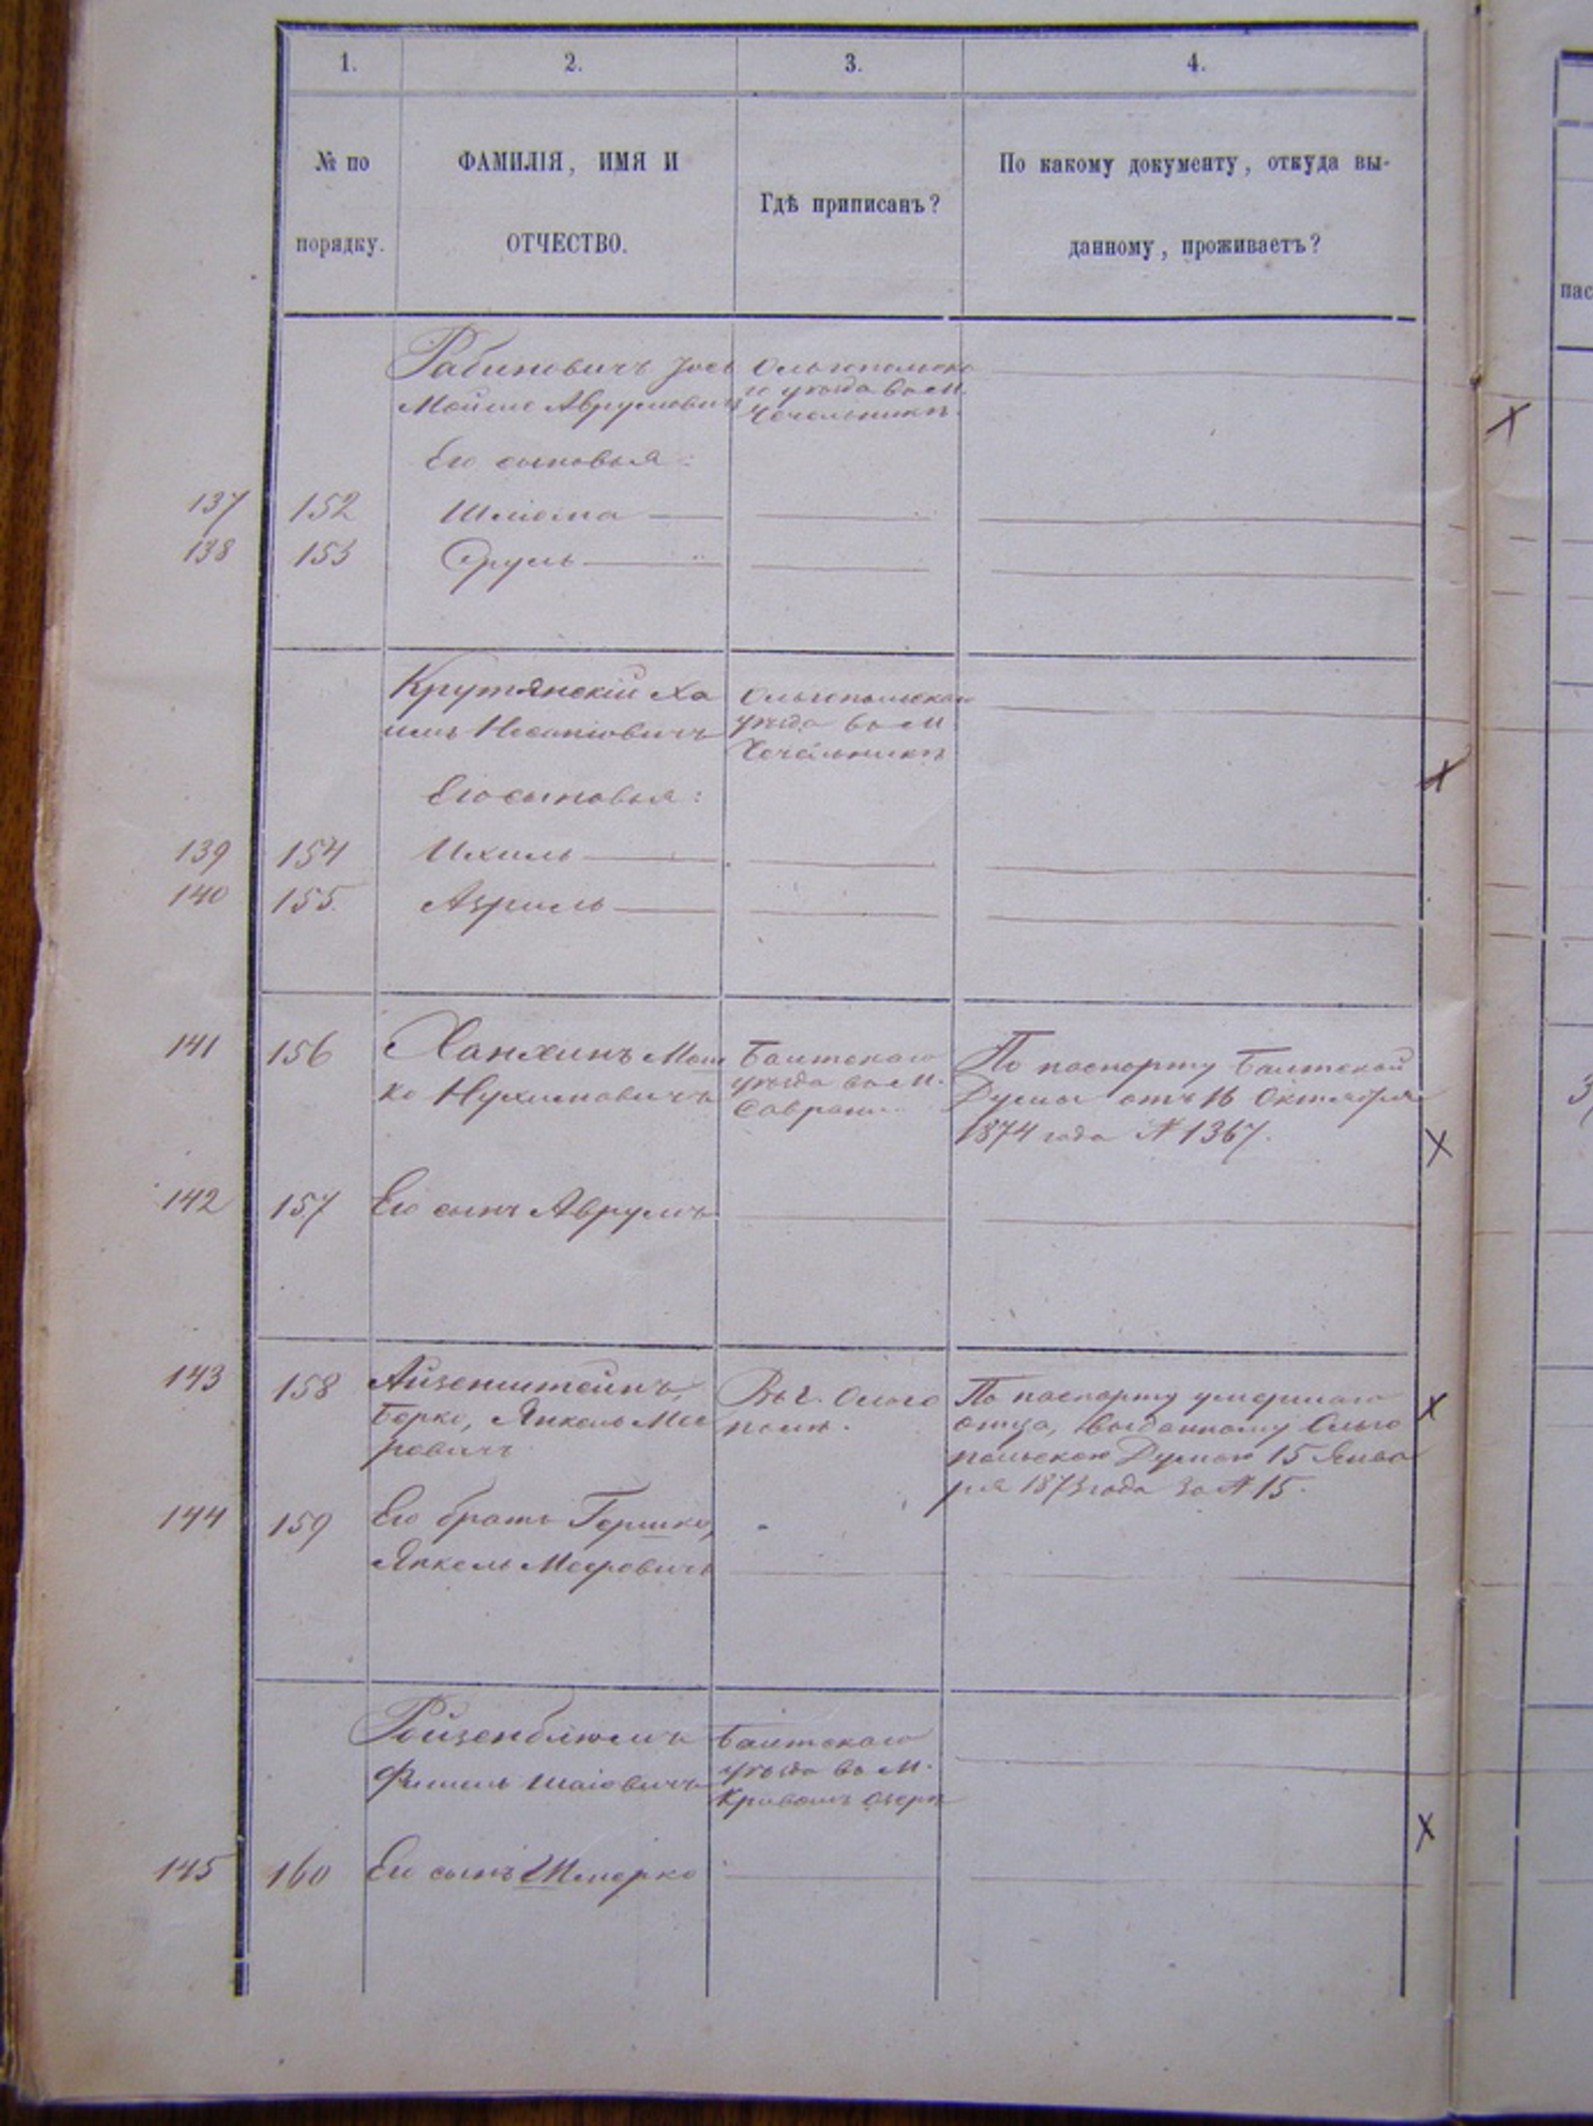 1. 2. 3. 4.
№ по
порядку.
ФАМИЛІЯ, ИМЯ И
ОТЧЕСТВО.
Гдѣ приписанъ?
По какому документу, откуда вы-
данному, проживаетъ?
пас
Рабиновичъ Іось
Мойше Аврумовичъ
Ольгопольска
го уѣзда въ м.
Чечельникѣ
Его сыновья:
137 152 Шліома
138 153 Сруль "
Крутянскій Ха
имъ
Ольгопольскаго
уѣзда въ м.
Чечельникѣ
Его сыновья:
139 154 Ихиль
140 155. Азриль
141 156 Ханхинъ Мош
ко Нухимовичъ
Балтскаго
уѣзда въ м.
Саврани
По паспорту Балтской
Думы отъ 16 Октября
1874 года № 1367.
142 157 Его сынъ Аврумъ
143 158 Айзенштейнъ,
Берко, Янкель Мее
ровичъ
Въ г. Ольго
полѣ.
По паспорту умершаго
отца, выданному Ольго
польскою Думою 15 Янва
ря 1873 года за № 15.
144 159 Его братъ Гершко,
Янкель Мееровичъ
Ройзенблюмъ
Фишель Шаіовичъ
Балтскаго
уѣзда въ м.
Кривомъ Озерѣ
145 160 Его сынъ Шмерко